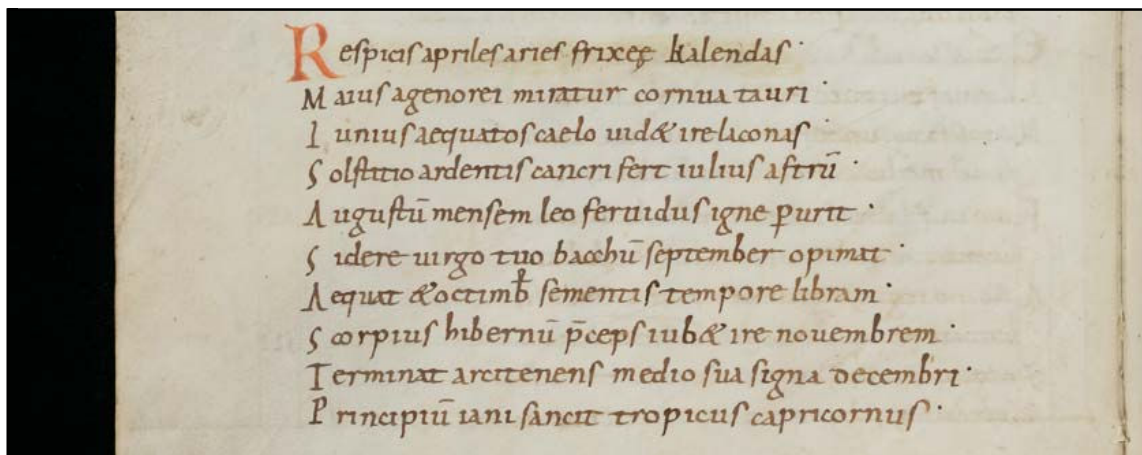 Respicis apriles aries frixeę kalendas·
Maius agenorei miratur cornua tauri
Iunius aequatos caelo uid& ire laconas·
Solstitio ardentis cancri fert iulius astrū·
Augustū mensem leo feruidus igne ꝑurit·
Sidere uirgo tuo bacchū september opimat·
Aequat & octimbꝛ̄ sementis tempore libram·
Scorpius hibernū p̄ceps iub& ire nouembrem·
Terminat arcitenens medio sua signa decembri·
Principiū iani sancit tropicus capricornus·